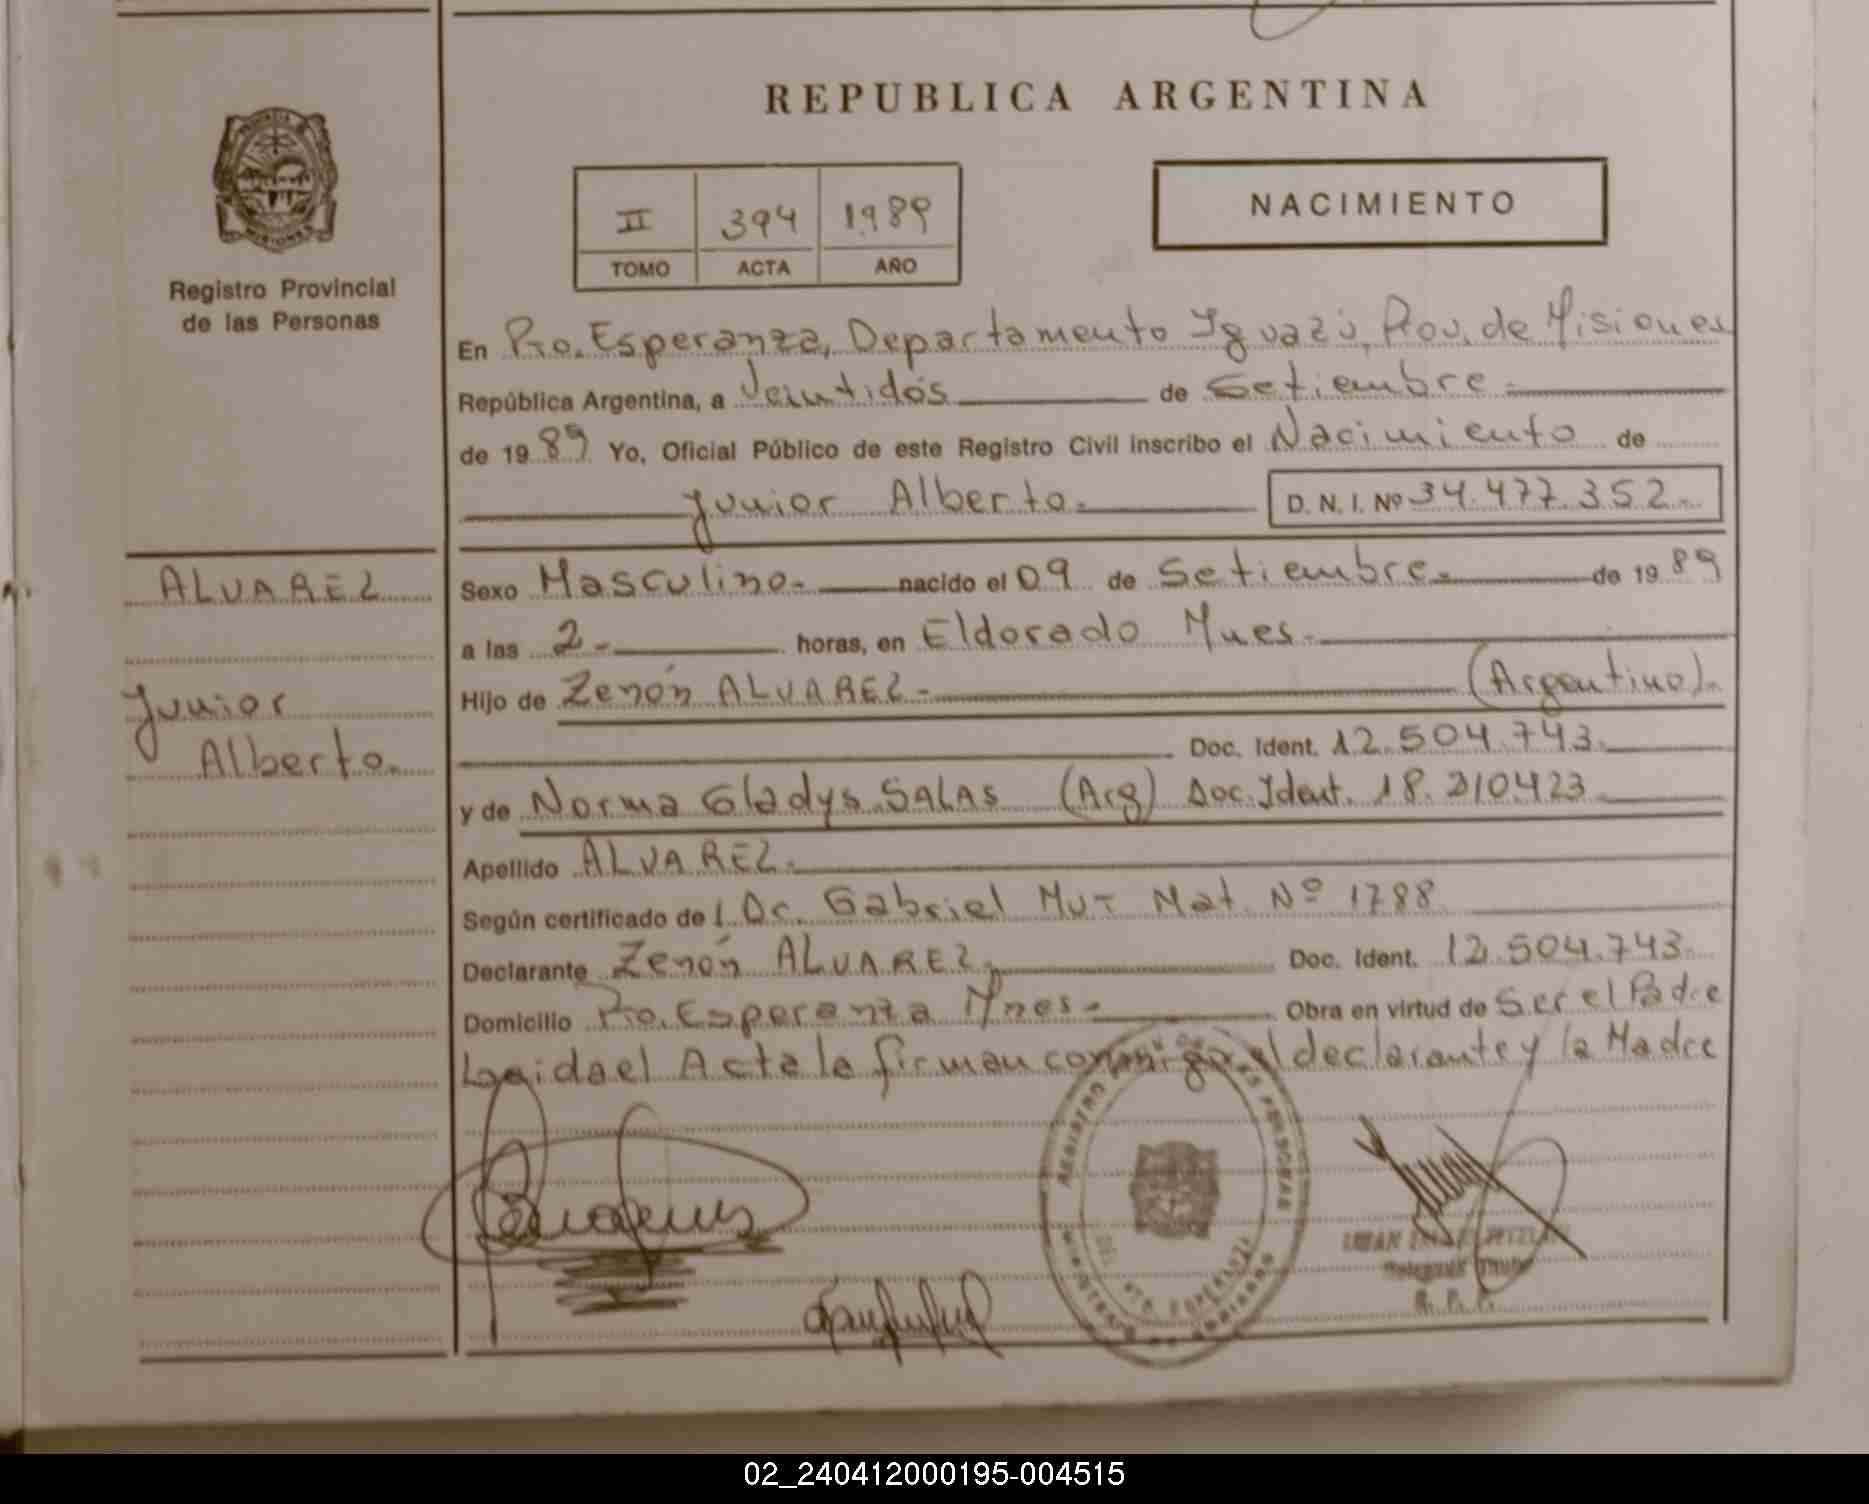 REPUBLICA ARGENTINA
PROVINCIA DE
MISIONES
Registro Provincial
de las Personas
II 394 1989
TOMO ACTA AÑO
NACIMIENTO
En Pto. Esperanza, Departamento Iguazú, Prov. de Misiones
República Argentina, a Veintidós de Setiembre.-
de 1989 Yo, Oficial Público de este Registro Civil inscribo el Nacimiento de
Junior Alberto.- D. N. I. Nº 34.477.352.-
ALVAREZ
Junior
Alberto.
Sexo Masculino.- nacido el 09 de Setiembre.- de 1989
a las 2- horas, en Eldorado Mnes.-
Hijo de Zenón ALVAREZ.- (Argentino).-
Doc. Ident. 12.504.743.-
y de Norma Gladys SALAS (Arg) Doc. Ident. 18.210.423
Apellido ALVAREZ.-
Según certificado de: Dr. Gabriel MUT Mat. Nº 1788
Declarante Zenón ALVAREZ.- Doc. Ident. 12.504.743.-
Domicilio Pto. Esperanza Mnes.- Obra en virtud de Ser el Padre
Leida el Acta la firman conmigo el declarante y la Madre
REGISTRO DE LAS PERSONAS
R. P. P.
02_240412000195-004515